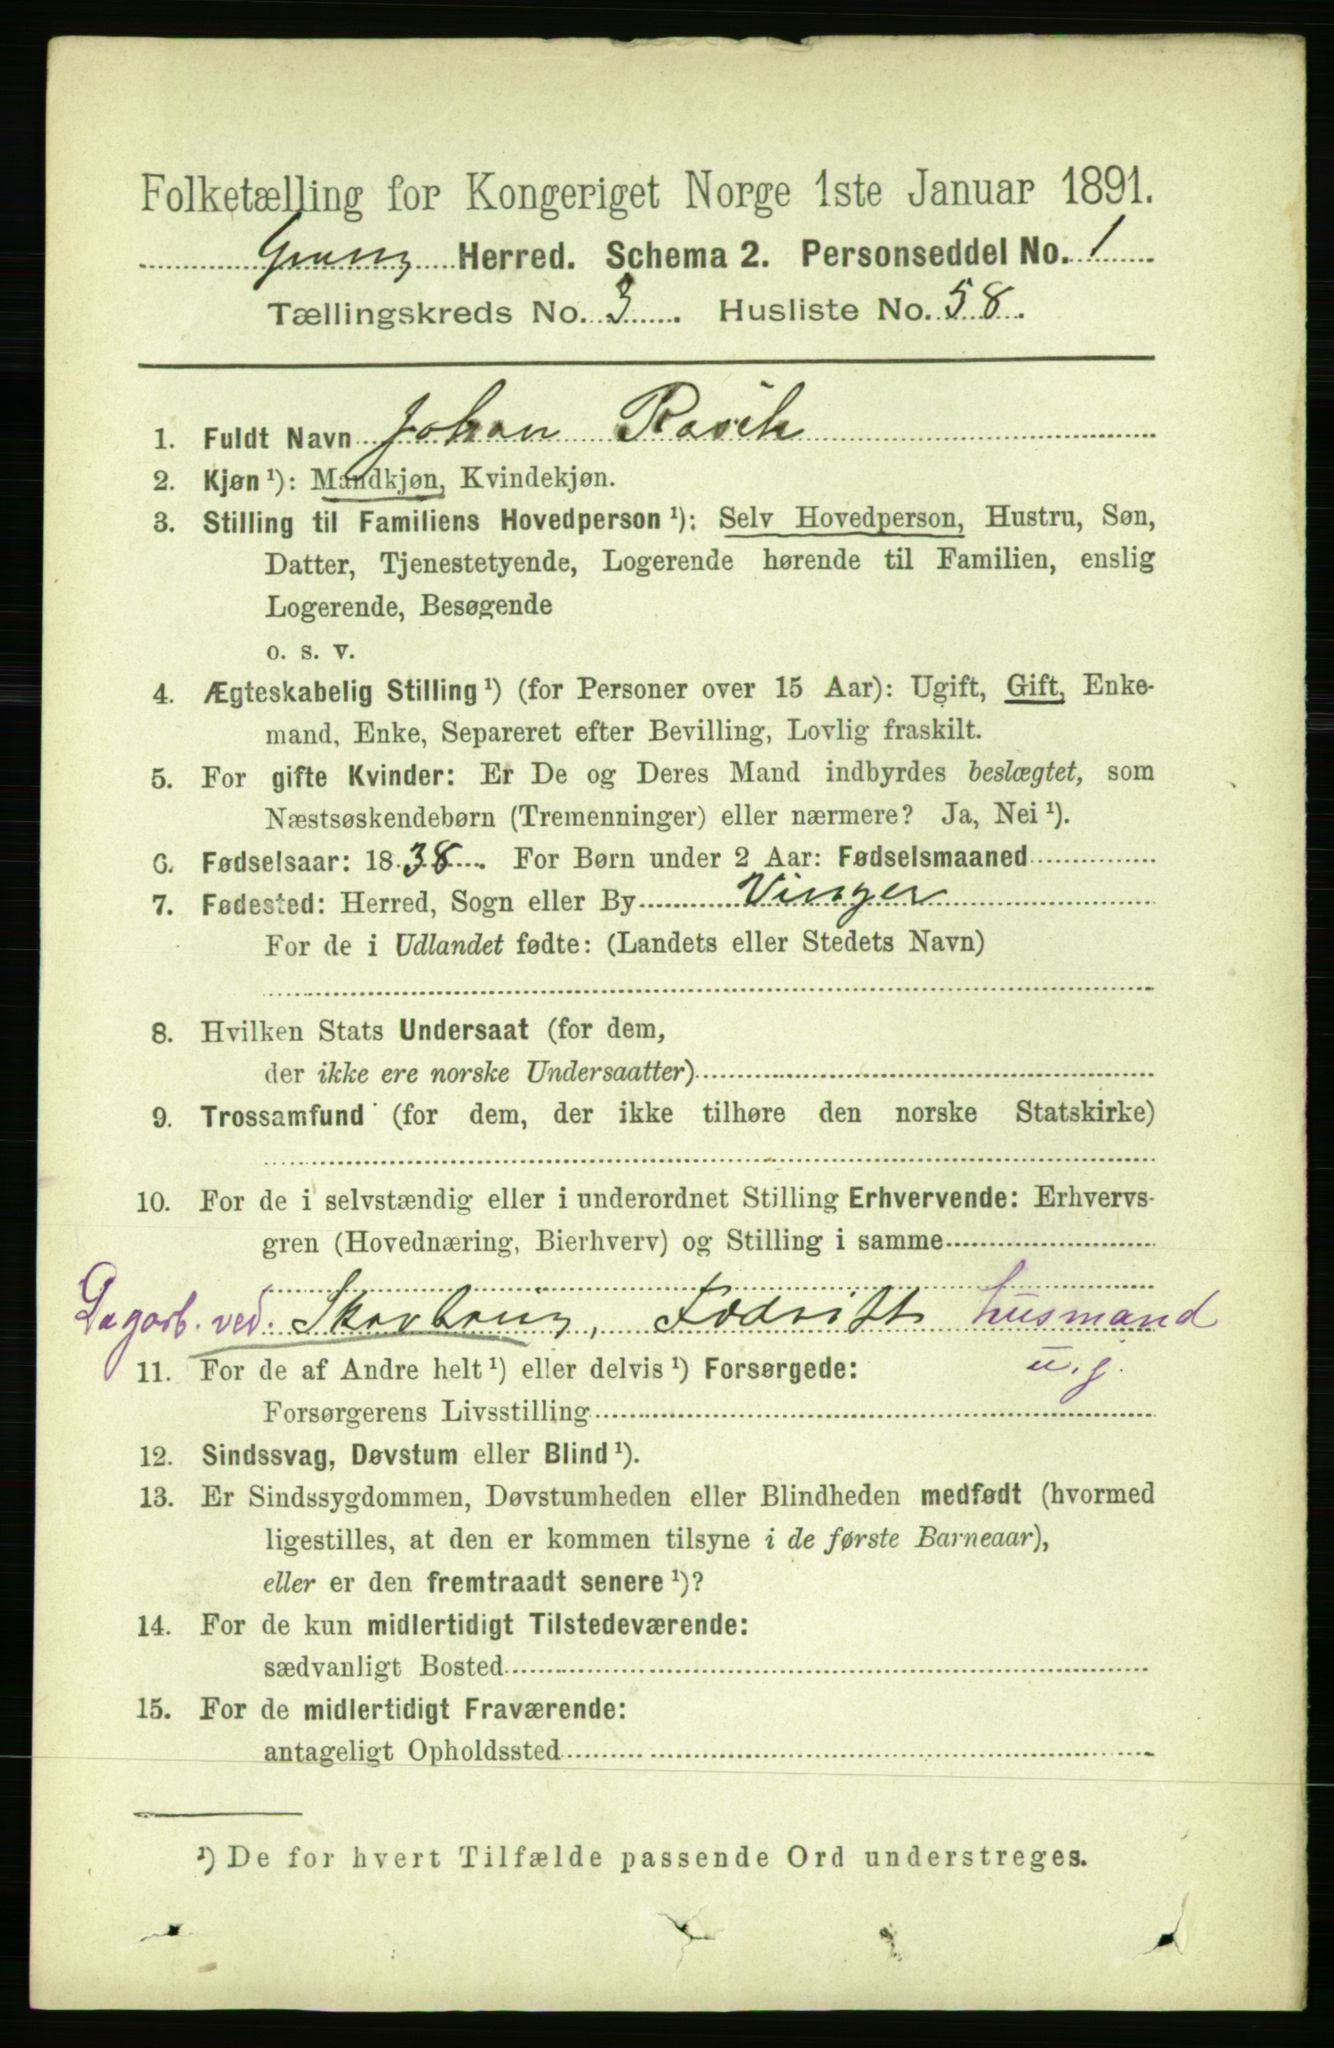 Folketælling for Kongeriget Norge 1ste Januar 1891.
Grung Herred. Schema 2. Personseddel No. 1
Tællingskreds No. 3. Husliste No. 58.
1. Fuldt Navn Johan Rasch
2. Kjøn ¹): Mandkjøn, Kvindekjøn.
3. Stilling til Familiens Hovedperson ¹): Selv Hovedperson, Hustru, Søn,
Datter, Tjenestetyende, Logerende hørende til Familien, enslig
Logerende, Besøgende
o. s. v.
4. Ægteskabelig Stilling ¹) (for Personer over 15 Aar): Ugift, Gift, Enke-
mand, Enke, Separeret efter Bevilling, Lovlig fraskilt.
5. For gifte Kvinder: Er De og Deres Mand indbyrdes beslægtet, som
Næstsøskendebørn (Tremenninger) eller nærmere? Ja, Nei ¹).
6. Fødselsaar: 1838. For Børn under 2 Aar: Fødselsmaaned
7. Fødested: Herred, Sogn eller By Vinger
For de i Udlandet fødte: (Landets eller Stedets Navn)
8. Hvilken Stats Undersaat (for dem,
der ikke ere norske Undersaatter)
9. Trossamfund (for dem, der ikke tilhøre den norske Statskirke)
10. For de i selvstændig eller i underordnet Stilling Erhvervende: Erhvervs-
gren (Hovednæring, Bierhverv) og Stilling i samme
Dagarb. ved. Skovbrug, husmand
u. j.
11. For de af Andre helt ¹) eller delvis ¹) Forsørgede:
Forsørgerens Livsstilling
12. Sindssvag, Døvstum eller Blind ¹).
13. Er Sindssygdommen, Døvstumheden eller Blindheden medfødt (hvormed
ligestilles, at den er kommen tilsyne i de første Barneaar),
eller er den fremtraadt senere ¹)?
14. For de kun midlertidigt Tilstedeværende:
sædvanligt Bosted
15. For de midlertidigt Fraværende:
antageligt Opholdssted
¹) De for hvert Tilfælde passende Ord understreges.